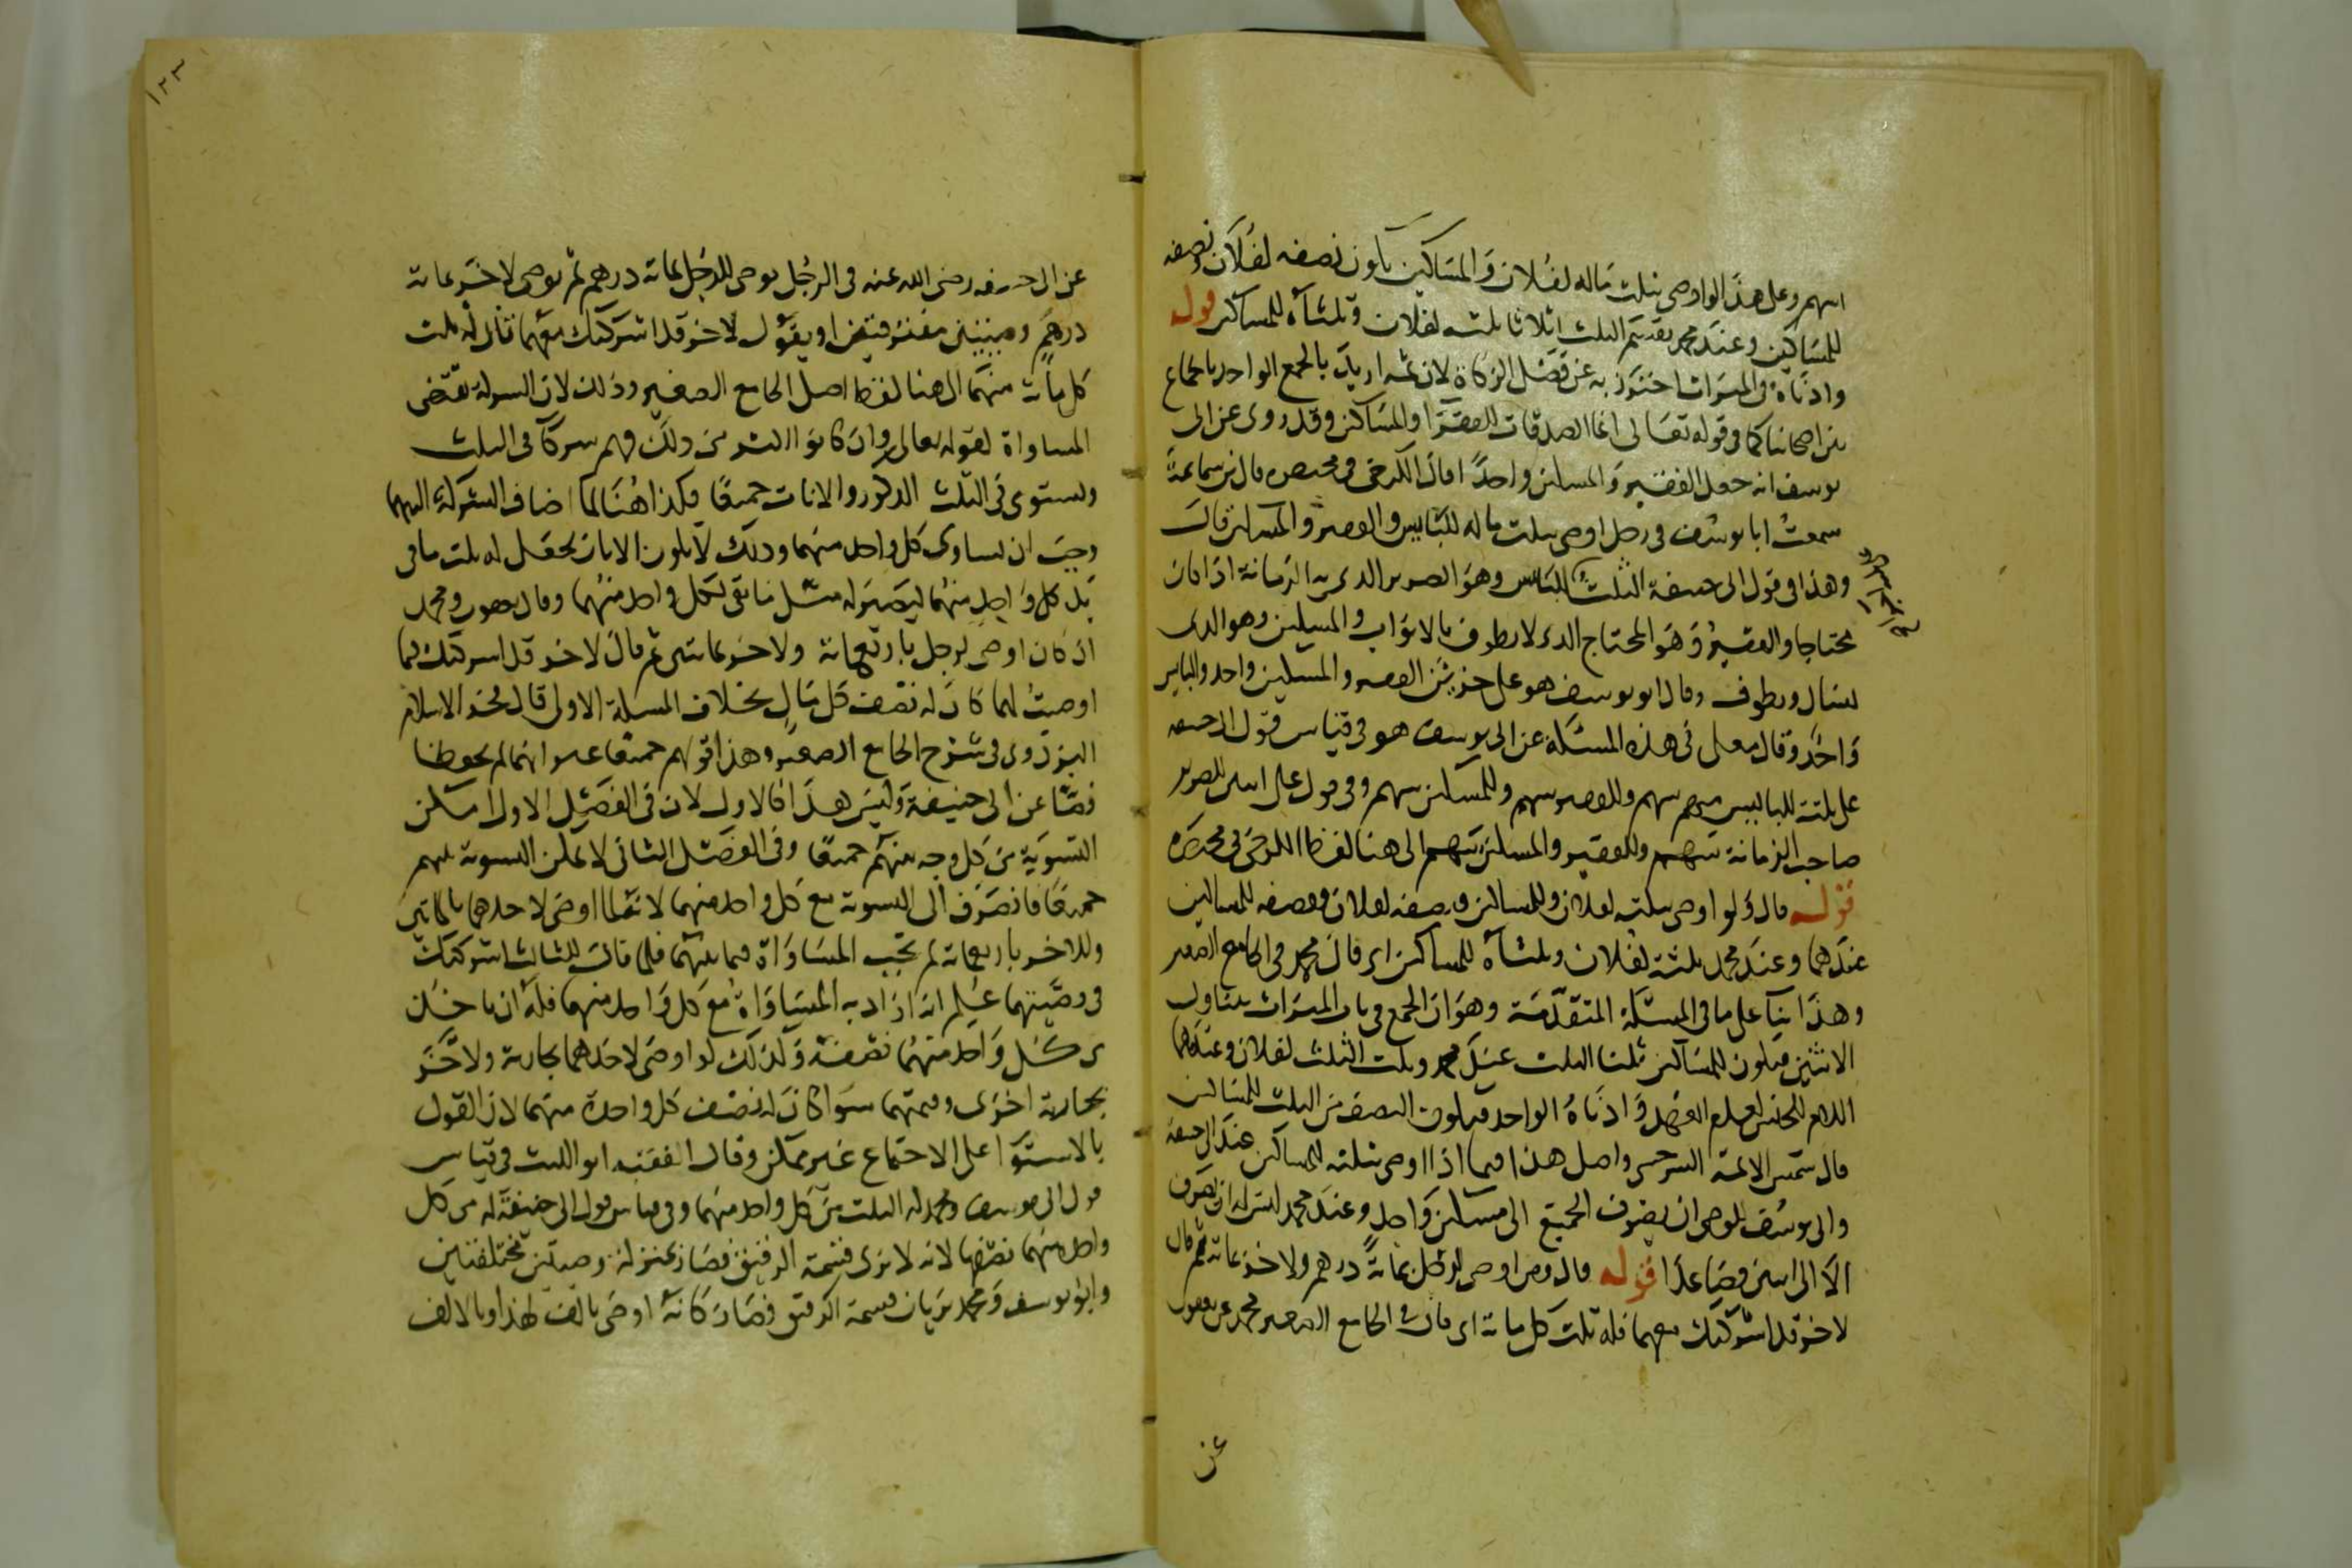 اسهم وعلى هذا لو اوصى بثلث ماله لفلان والمساكين يكون نصفه لفلان ونصفه
للمساكين وعند محمد يقسم الثلث اثلاثا ثلثه لفلان وثلثاه للمساكين قوله
وادناه فى الميراث احترز به عن فصل الزكاة لان ثمه اريد بالجمع الواحد باجماع
بين اصحابنا كما فى قوله تعالى انما الصدقات للفقرا والمساكين وقد روى عن ابى
يوسف انه جعل الفقير والمسكين واحدا قال الكرخى فى مختصره قال بن سماعة
سمعت ابا يوسف فى رجل اوصى بثلث ماله للبايس والفقير والمسكين قال
وهذا فى قول ابى حنيفة الثلث للبايس وهو الضرير الذى به الزمانة اذا كان
محتاجا والفقير وهو المحتاج الذى لا يطوف بالابواب والمسكين وهو الذى
يسال ويطوف وقال ابو يوسف هو على جزئين الفقير والمسكين واحد والبايس
واحد وقال معلى فى هذه المسئلة عن ابى يوسف هو فى قياس قول ابى حنيفه
على ثلثة للبايس منهم سهم وللفقير سهم وللمسكين سهم وفى قول على اسهم للضرير
صاحب الزمانة سهم وللفقير والمسكين سهم الى هنا لفظ الكرخى فى مختصره
قوله قال ولو اوصى بثلثه لفلان وللمساكين فنصفه لفلان ونصفه للمساكين
عندهما وعند محمد ثلثه لفلان وثلثاه للمساكين اى قال محمد فى الجامع الصغير
وهذا بناء على ما فى المسئلة المتقدمة وهو ان الجمع فى باب الميراث يتناول
الاثنين فيكون للمساكين ثلثا الثلث عند محمد وثلث الثلث لفلان وعندهما
اللام للجنس لعدم العهد وادناه الواحد فيكون النصف من الثلث للمساكين
قال شمس الائمة السرخسى واصل هذا فيما اذا اوصى بثلثه للمساكين عند ابى حنيفة
وابى يوسف للوصى ان يصرف الجميع الى مسكين واحد وعند محمد ليس له ان يصرف
الا الى اثنين فصاعدا قوله قال ومن اوصى لرجل بمائة درهم ولاخر بمائة ثم قال
لاخر قد اشركتك معهما فله ثلث كل مائة اى قال فى الجامع الصغير محمد عن يعقوب
عن
١٢٣
عن ابى حنيفه رضى الله عنه فى الرجل يوصى للرجل بمائة درهم ثم يوصى لاخر بمائة
درهم ويقول لاخر قد اشركتك معهما قال له ثلث
كل مائة منهما الى هنا لفظ اصل الجامع الصغير وذلك لان الشركة تقتضى
المساواة لقوله تعالى وان كانوا اكثر من ذلك فهم شركا فى الثلث
ويستوى فى الثلث الذكور والاناث جميعا فكذا هنا لما اضاف الشركة اليهما
وجب ان يساوى كل واحد منهما وذلك لا يكون الا بان يجعل له ثلث ما فى
يد كل واحد منهما ليصير له مثل ما بقى لكل واحد منهما وقال يعقوب ومحمد
اذ كان اوصى لرجل باربعمائة ولاخر بمائتين ثم قال لاخر قد اشركتك فيما
اوصيت لهما كان له نصف كل مال بخلاف المسئلة الاولى قال فخر الاسلام
البزدوى فى شرح الجامع الصغير وهذا قولهم جميعا غير انهما لم يحفظا
نصا عن ابى حنيفة وليس هذا كالاول لان فى الفصل الاول امكن
التسوية من كل وجه بينهم جميعا وفى الفصل الثانى لا يمكن التسوية بينهم
جميعا فانصرف الى التسوية مع كل واحد منهما لانه لما اوصى لاحدهما بالمائتين
وللاخر باربعمائة لم تجب المساواة فيما بينهما فلما قال للثالث اشركتك
فى وصيتهما علم انه اراد به المساواة مع كل واحد منهما فله ان ياخذ من
كل واحد منهما نصفه وكذلك لو اوصى لاحدهما بجارية ولاخر
بجارية اخرى وقيمتهما سوا كان له نصف كل واحدة منهما لان القول
بالاستوا على الاجتماع غير ممكن وقال الفقيه ابو الليث فى قياس
قول ابى يوسف ومحمد له الثلث من كل واحد منهما وفى قياس قول ابى حنيفة له من كل
واحد منهما نصفها لانه لا يرى قسمة الرقيق فصار بمنزلة وصيتين مختلفتين
وابو يوسف ومحمد يريان قسمة الرقيق فصار كانه اوصى بالف لهذا وبالالف